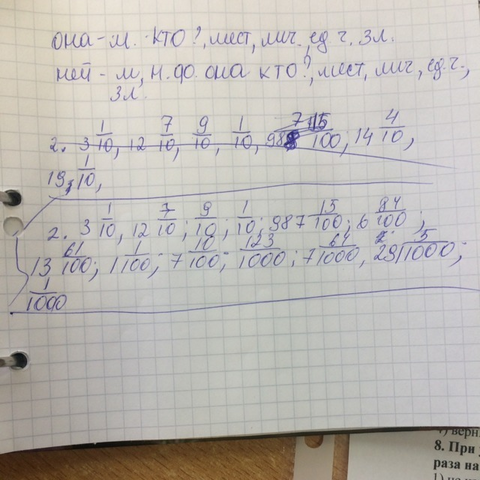 она - м. - кто?, мест, лич. ед ч. 3л.
ней - м, н. фо. она кто?, мест, лич, ед.ч.,
3л.
2. 3 1/10, 12 7/10, 9/10, 1/10, 98 15/100, 14 4/10,
19, 1/10,
2. 3 1/10, 12 7/10; 9/10; 1/10; 987 15/100; 6 84/100;
13 61/100; 1 1/100; 7 10/100; 123/1000; 7 64/1000, 29 5/1000;
1/1000
8. При
раза на